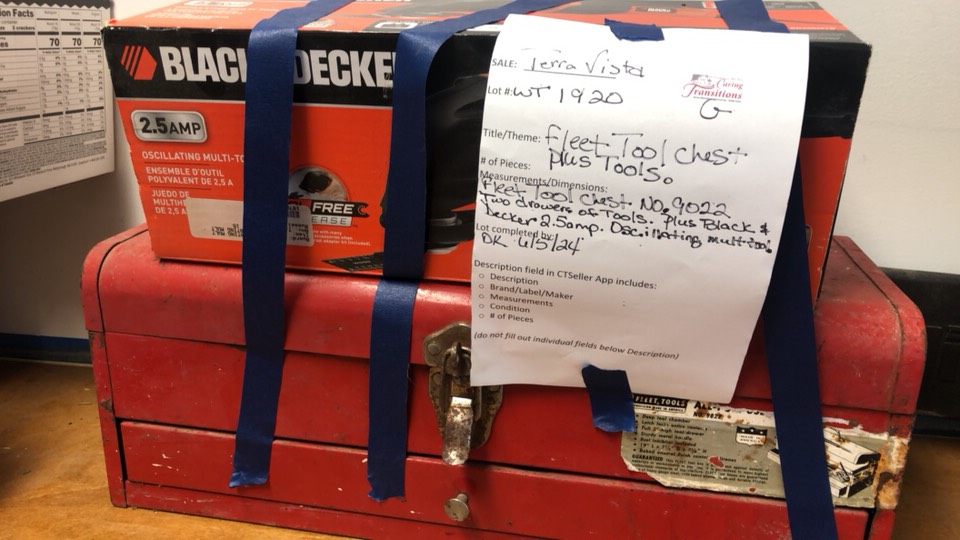 ion Facts
70 70 70
BLACK DECKE
2.5 AMP
OSCILLATING MULTI-TO
ENSEMBLE D'OUTIL
POLYVALENT DE 2,5 A
JUEDO DE
MULTIH
DE 2,5 A
FREE
EASE
SALE: Terra Vista
Lot #: WT 1920
Caring
Transitions
G
Title/Theme: Fleet Tool Chest
plus Tools.
# of Pieces:
Measurements/Dimensions:
Fleet Tool Chest. No. 9022
Two drawers of Tools. Plus Black &
Decker 2.5amp. Oscillating multitool
Lot completed by:
DK 6/5/24
Description field in CTSeller App includes:
○ Description
○ Brand/Label/Maker
○ Measurements
○ Condition
○ # of Pieces
(do not fill out individual fields below Description)
FLEET TOOLS
GUARANTEED